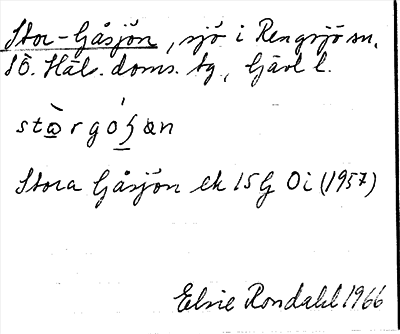 Stor-Gåsjön, sjö i Rengsjö sn,
SÖ. Häls. doms. tg, Gävl l.
Stora Gåsjön ek 15G 0i (1957)
Elsie Rondahl 1966